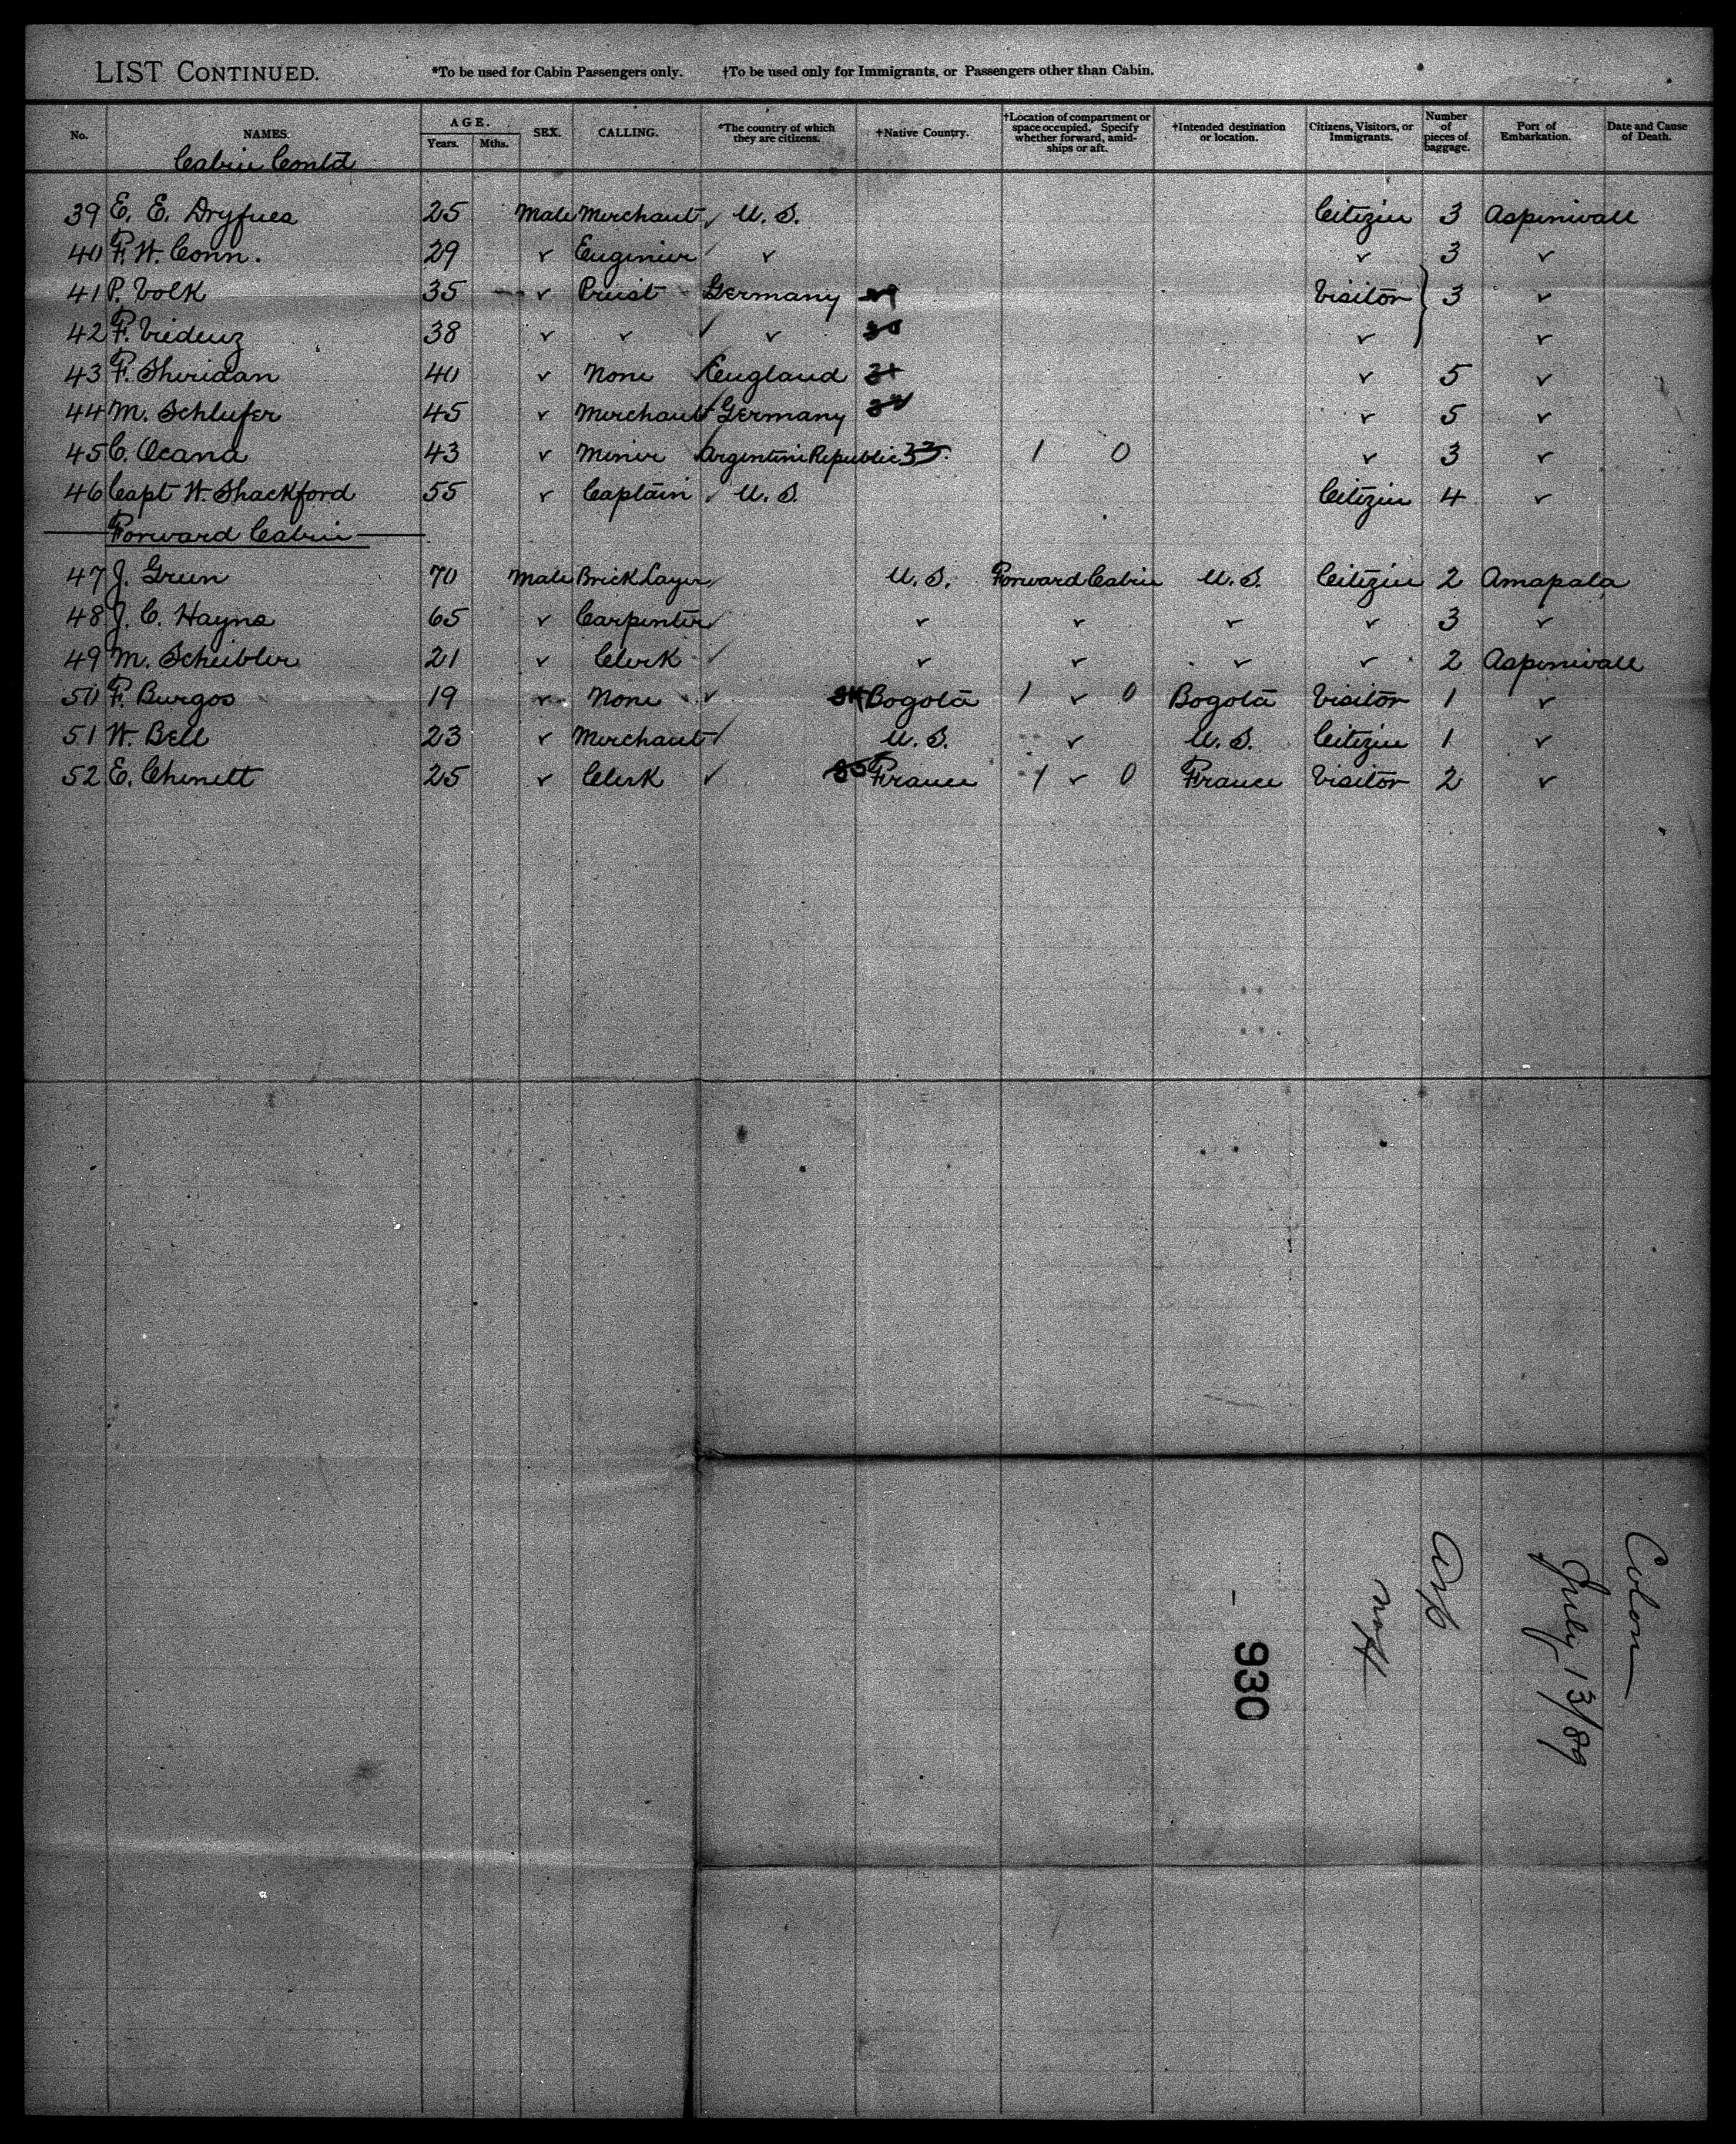 LIST CONTINUED. *To be used for Cabin Passengers only. †To be used only for Immigrants, or Passengers other than Cabin.
No. NAMES. AGE. Years. Mths. SEX. CALLING. *The country of which they are citizens. †Native Country. †Location of compartment or space occupied. Specify whether forward, amid-ships or aft. †Intended destination or location. Citizens, Visitors, or Immigrants. Number of pieces of baggage. Port of Embarkation. Date and Cause of Death.
Cabin Contd
39 E. E. Dryfues 25 Male Merchant ✓ U. S. Citizen 3 Aspinwall
40 F. W. Conn. 29 ✓ Enginier ✓ ✓ ✓ 3 ✓
41 P. Volk 35 ✓ Priest Germany 29 Visitor 3 ✓
42 F. Viedenz 38 ✓ ✓ ✓ ✓ 30 ✓ ✓
43 F. Sheridan 40 ✓ None ✓ England 31 ✓ 5 ✓
44 M. Schlufer 45 ✓ Merchant ✓ Germany 32 ✓ 5 ✓
45 C. Ocana 43 ✓ Miner Argentine Republic 33 1 0 ✓ 3 ✓
46 Capt W. Shackford 55 ✓ Captain ✓ U. S. Citizen 4 ✓
Forward Cabin
47 J. Green 70 Male Brick Layer ✓ U. S. Forward Cabin U. S. Citizen 2 Amapala
48 J. C. Hayns 65 ✓ Carpenter ✓ ✓ ✓ ✓ ✓ 3 ✓
49 M. Scheibler 21 ✓ Clerk ✓ ✓ ✓ ✓ ✓ 2 Aspinwall
50 F. Burgos 19 ✓ None ✓ 34 Bogotá 1 ✓ 0 Bogotá Visitor 1 ✓
51 W. Bell 23 ✓ Merchant ✓ U. S. ✓ U. S. Citizen 1 ✓
52 E. Chenett 25 ✓ Clerk ✓ 35 France 1 ✓ 0 France Visitor 2 ✓
Colon
July 13/89
- 930